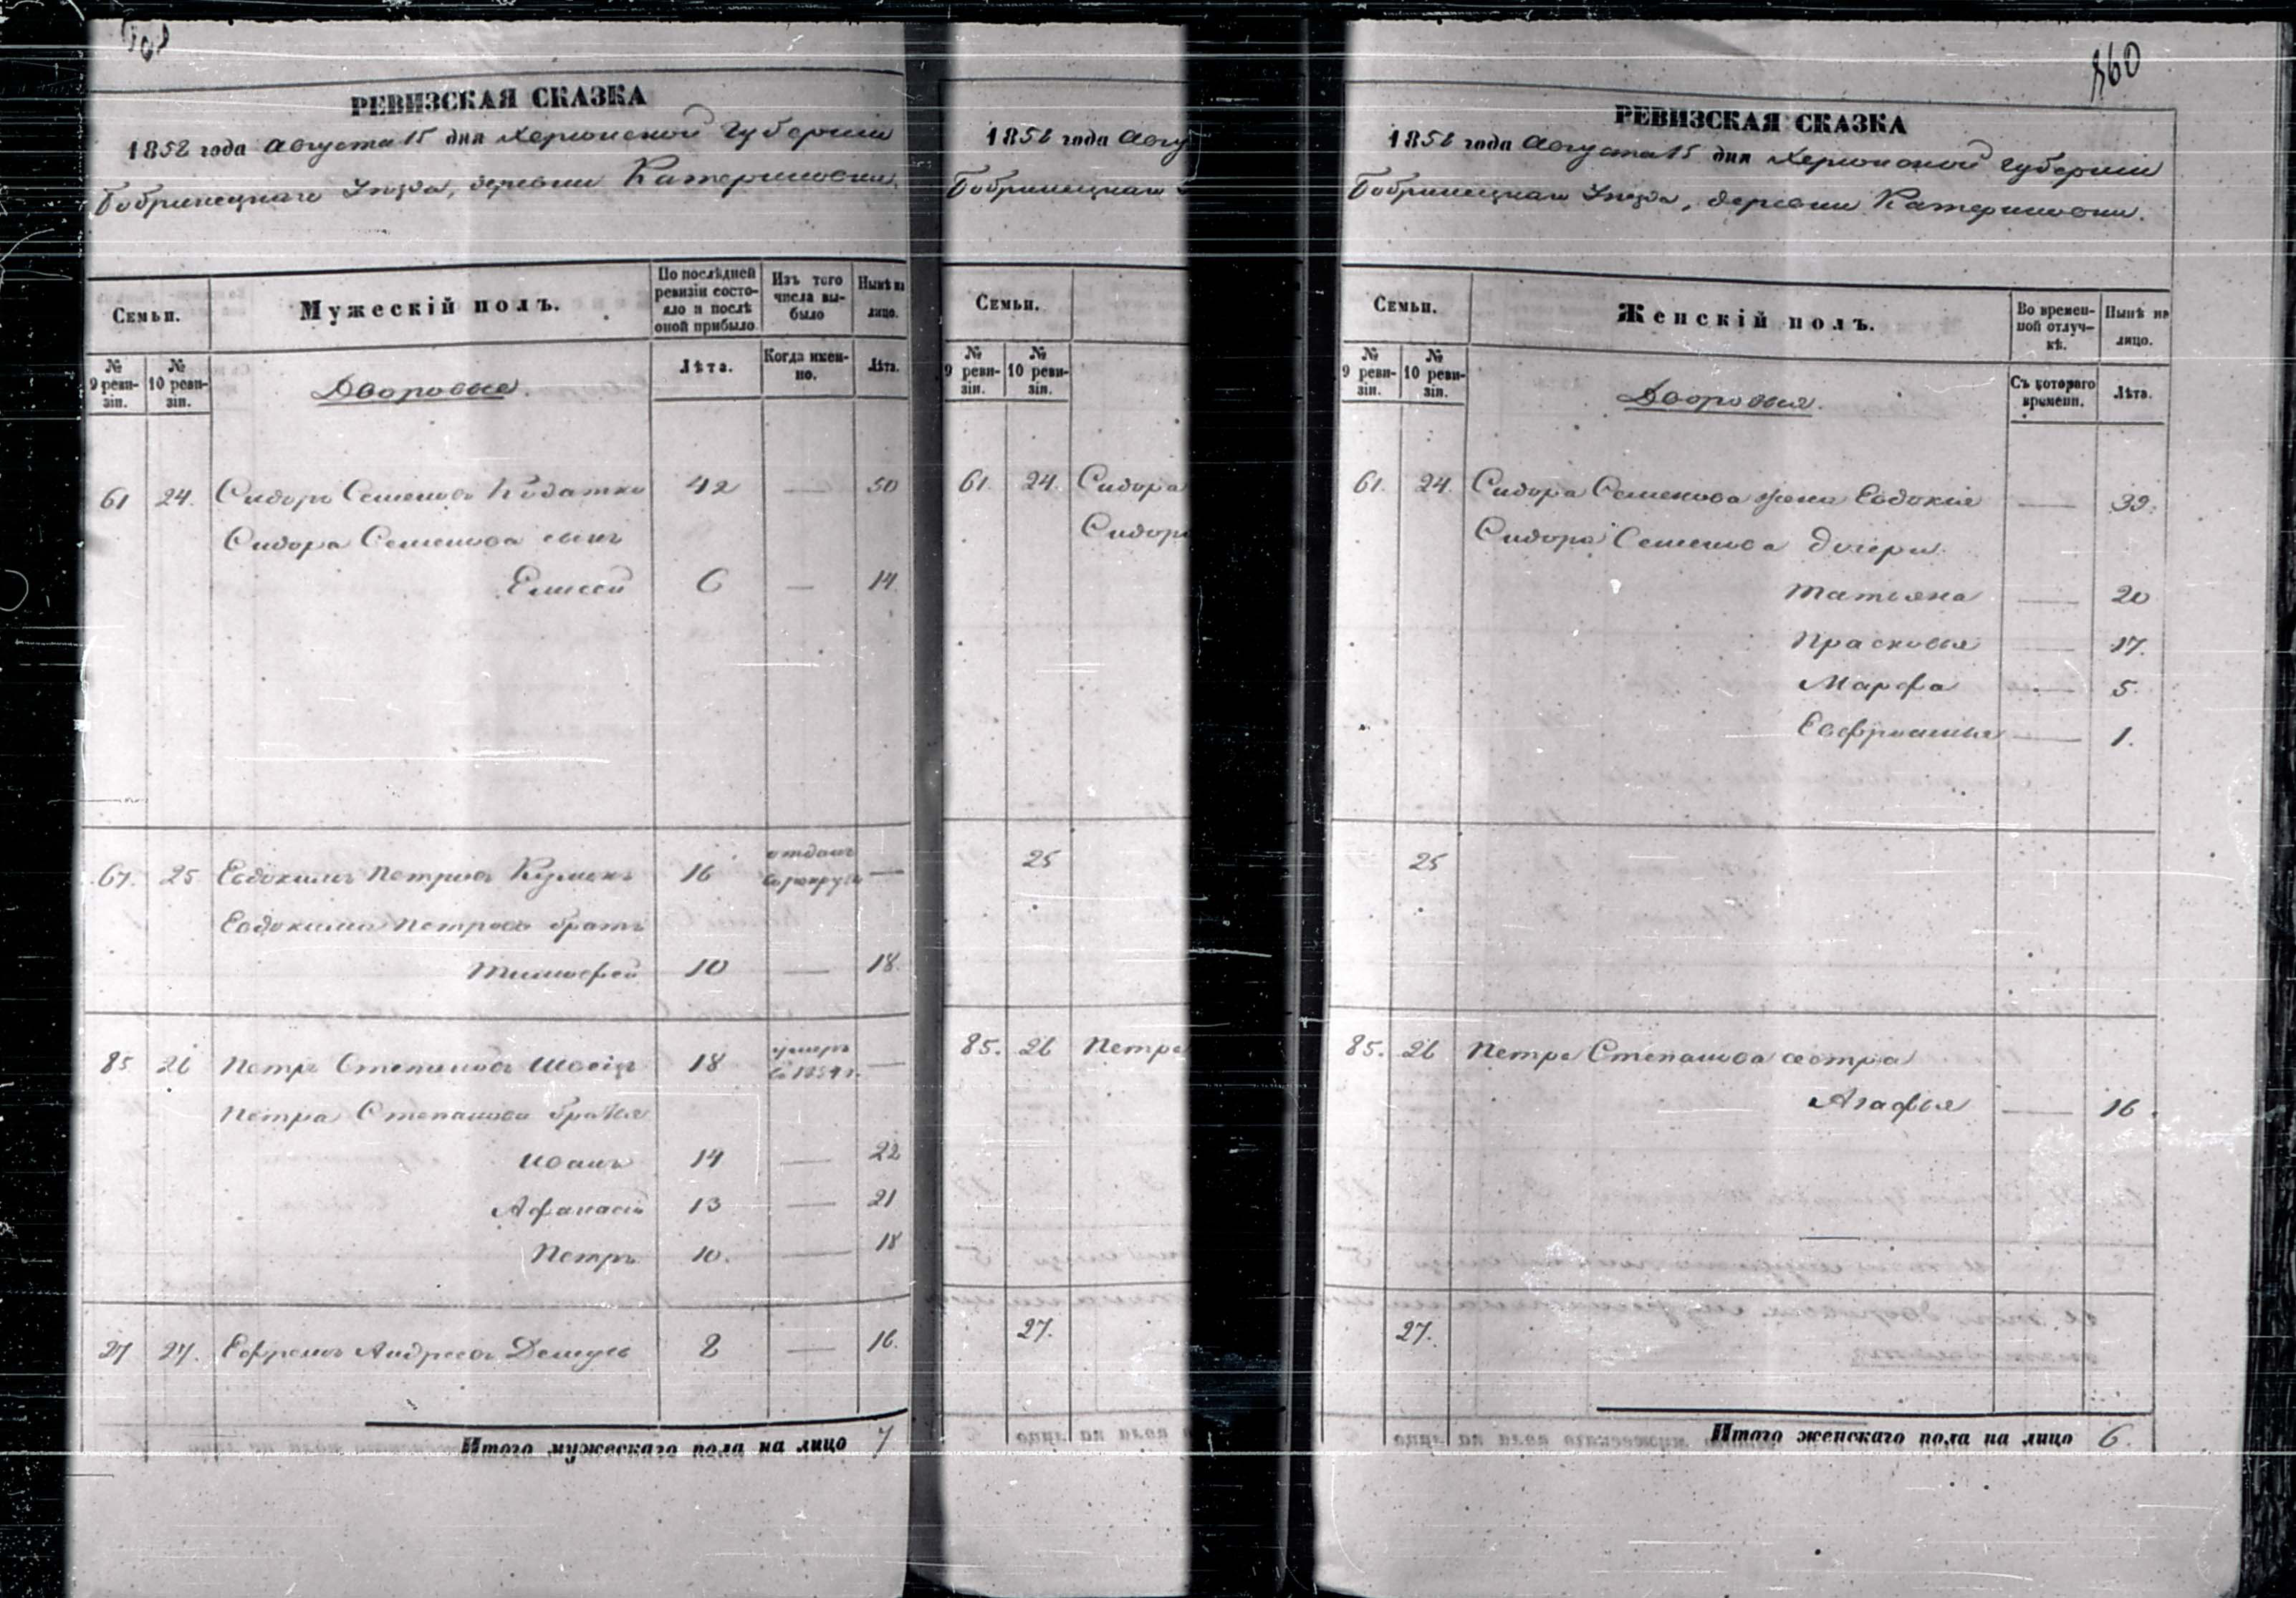 РЕВИЗСКАЯ СКАЗКА
1858 года Августа 15 дня Херсонской Губернии
Бобринецкаго Уезда, деревни Катериновки.
Семьи.
Мужескій полъ.
По послѣдней ревизіи состояло и послѣ оной прибыло
Изъ того числа выбыло
Нынѣ на лицо.
№ 9 ревизіи.
№ 10 ревизіи.
Дворовые.
Лѣта.
Когда именно.
Лѣта.
61 24. Сидоръ Семеновъ 42 — 50
Сидора Семенова сынъ
Елисей 6 — 14.
67. 25 Евдокимъ Петровъ 16 отданъ въ рекруты —
Евдокима Петрова братъ
Тимофей 10 — 18.
85 26 Петръ Степановъ 18 умеръ въ 1854 г. —
Петра Степанова братья
Иванъ 14 — 22
Афанасій 13 — 21
Петръ 10. — 18
27 27. Ефремъ Андреевъ 8 — 16.
Итого мужескаго пола на лицо 7
1858 года Авгу
Бобринецкаго
Семьи.
№ 9 ревизіи.
№ 10 ревизіи.
61. 24. Сидора
Сидора
25
85. 26 Петра
27.
860
РЕВИЗСКАЯ СКАЗКА
1858 года Августа 15 дня Херсонской Губерніи
Бобринецкаго Уезда, деревни Катериновки.
Семьи.
Женскій полъ.
Во временной отлучкѣ.
Нынѣ на лицо.
№ 9 ревизіи.
№ 10 ревизіи.
Дворовыя.
Съ котораго времени.
Лѣта.
61. 24. Сидора Семенова жена Евдокія — 39.
Сидора Семенова дочери
Татьяна — 20
Прасковья — 17.
Марфа — 5.
Евфросинья — 1.
25
85. 26 Петра Степанова сестра
Агафья — 16.
27.
Итого женскаго пола на лицо 6.